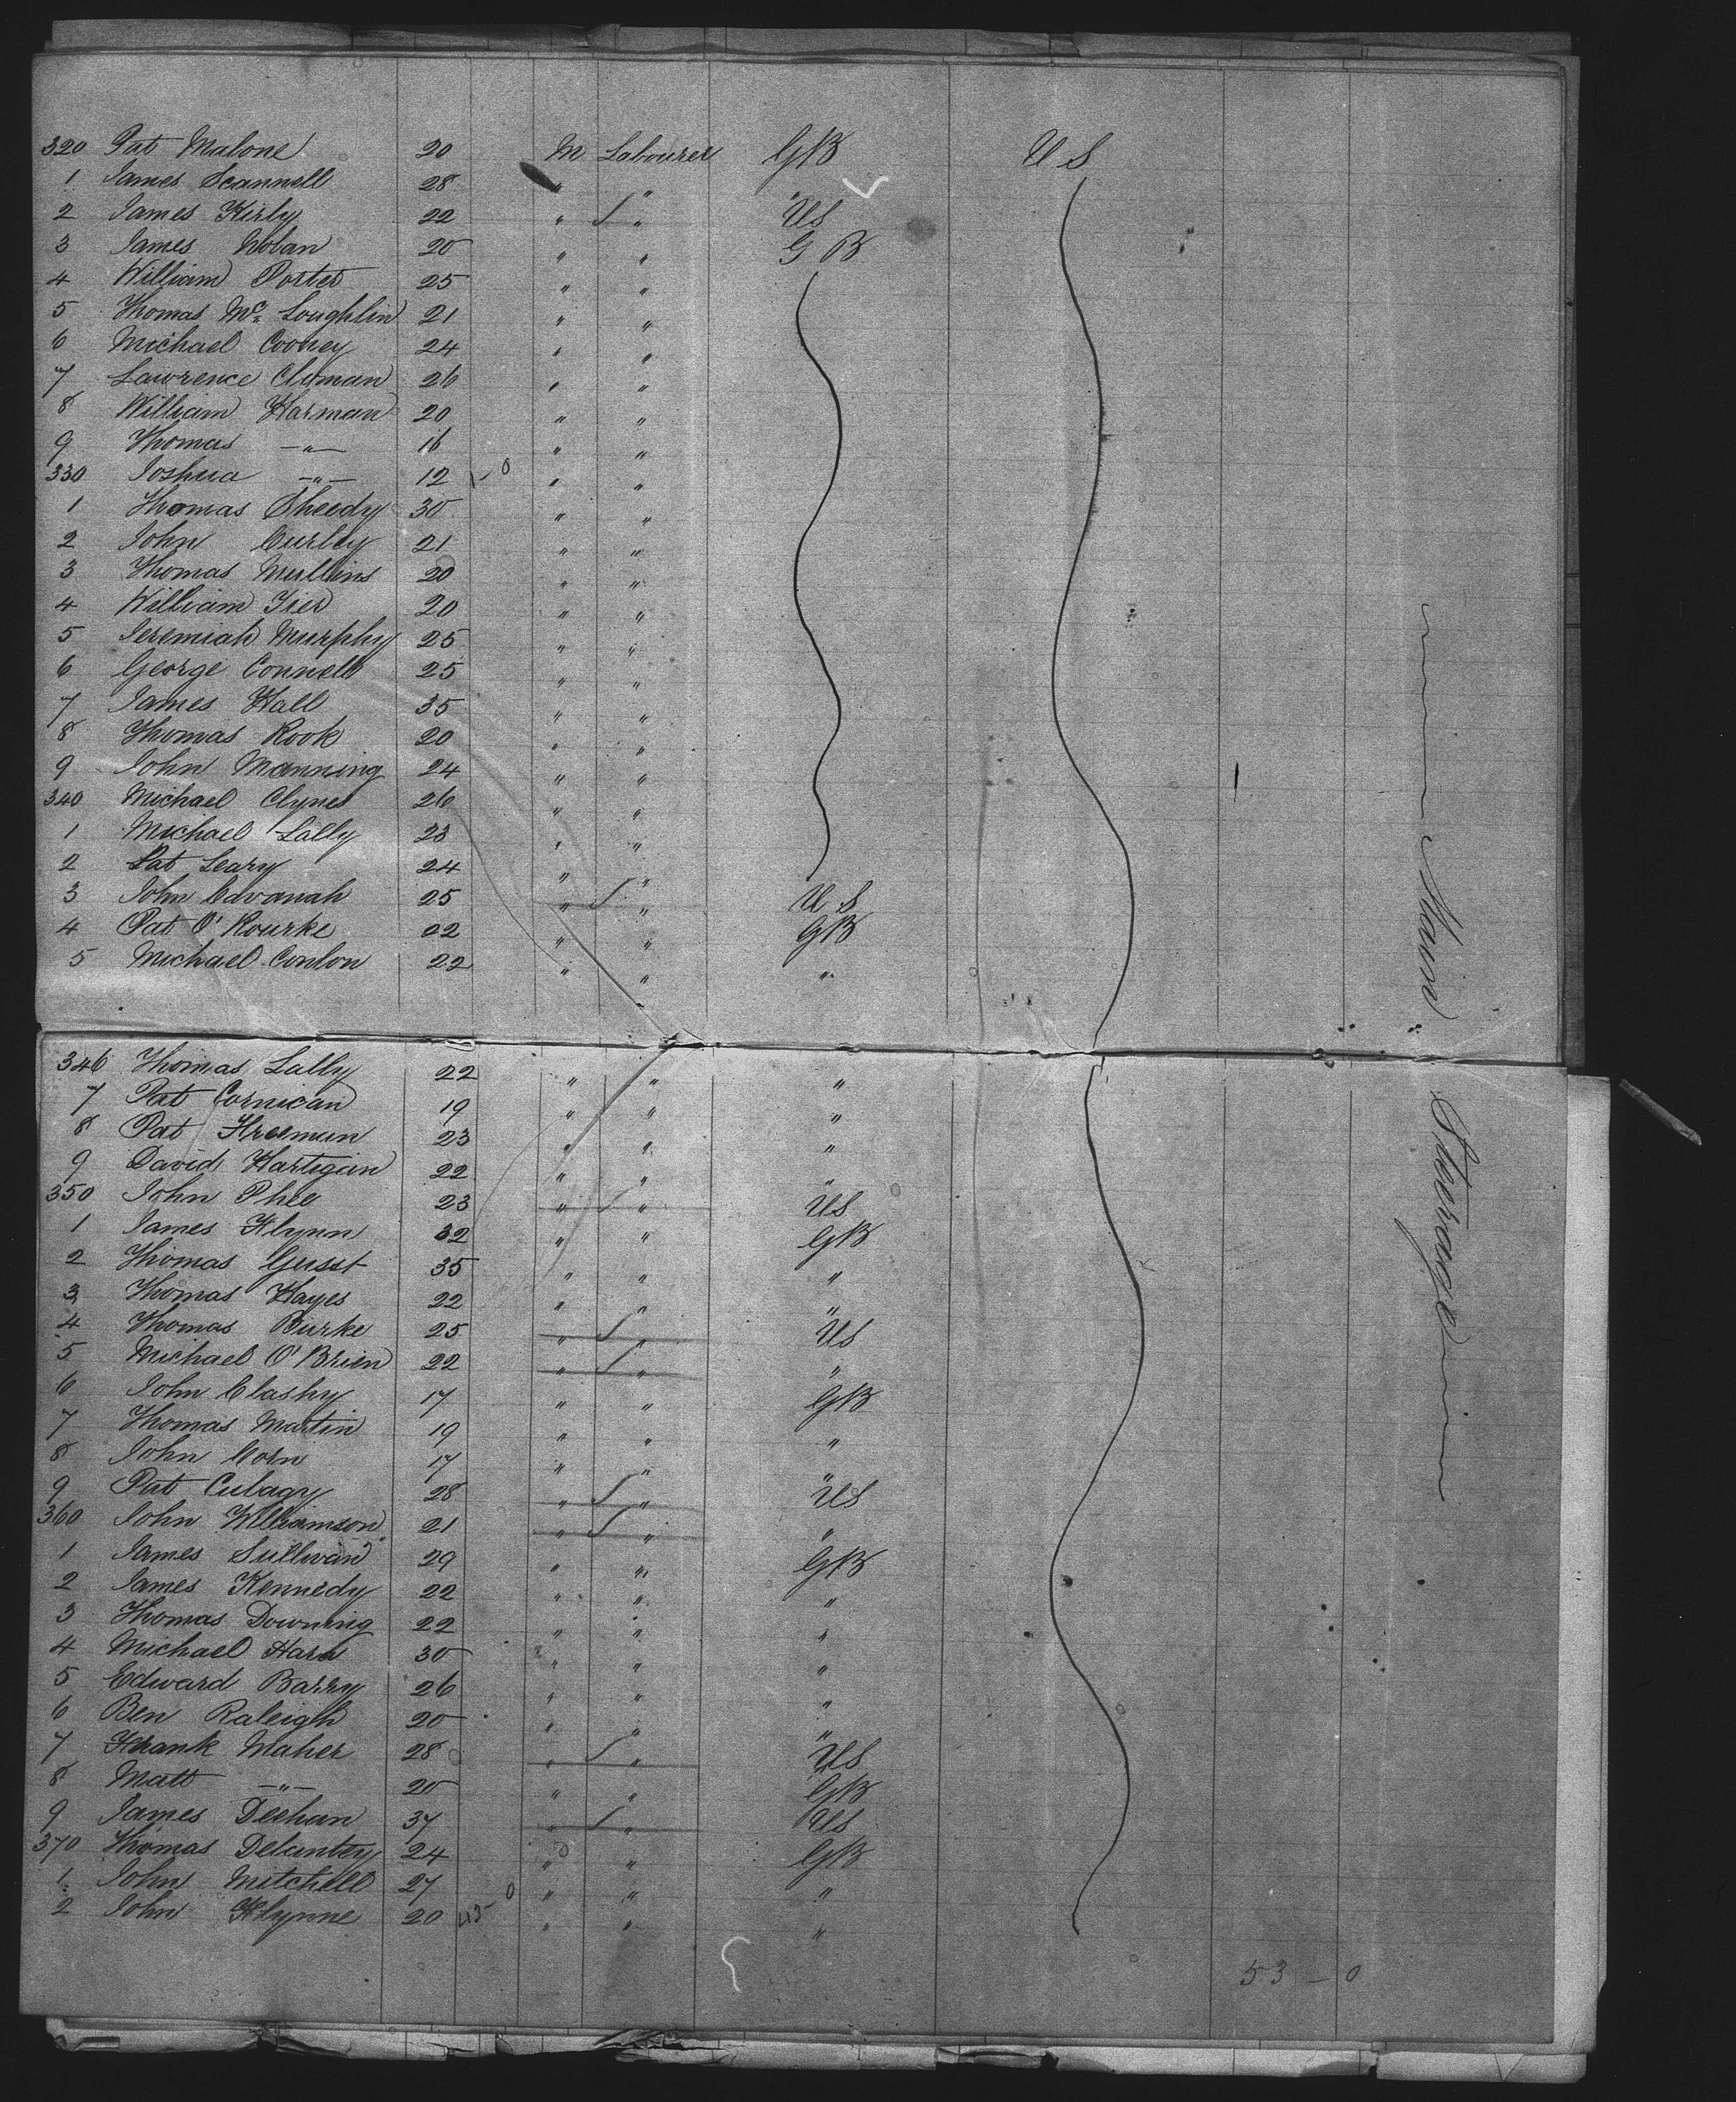 320 Pat Malone 20 M Labourer GB US
1 James Scannell 28 " " "
2 James Kirby 22 " " US
3 James Nolan 20 " " GB
4 William Porter 25 " "
5 Thomas Mc Loughlin 21 " "
6 Michael Cooney 24 " "
7 Lawrence Cluman 26 " "
8 William Harman 20 " "
9 Thomas —"— 16 " "
330 Joshua —"— 12 " "
1 Thomas Sheedy 30 " "
2 John Curley 21 " "
3 Thomas Mullins 20 " "
4 William Tier 20 " "
5 Jeremiah Murphy 25 " "
6 George Connell 25 " "
7 James Hall 35 " "
8 Thomas Rook 20 " "
9 John Manning 24 " "
340 Michael Clynes 26 " "
1 Michael Lally 23 " "
2 Pat Leary 24 " "
3 John Cavanah 25 " " US
4 Pat O'Rourke 22 " " GB
5 Michael Conlon 22 " " "
346 Thomas Lally 22 " " "
7 Pat Cornican 19 " " "
8 Pat Freeman 23 " " "
9 David Hartigan 22 " " "
350 John Phee 23 " " US
1 James Flynn 32 " " GB
2 Thomas Gusst 35 " " "
3 Thomas Hayes 22 " " "
4 Thomas Burke 25 " " US
5 Michael O'Brien 22 " " "
6 John Clashy 17 " " GB
7 Thomas Martin 19 " " "
8 John Corn 17 " " "
9 Pat Culagy 28 " " US
360 John Williamson 21 " " "
1 James Sullivan 29 " " GB
2 James Kennedy 22 " " "
3 Thomas Downing 22 " " "
4 Michael Hara 30 " " "
5 Edward Barry 26 " " "
6 Ben Raleigh 20 " " "
7 Frank Maher 28 " " US
8 Matt —"— 20 " " GB
9 James Deehan 37 " " US
370 Thomas Delantey 24 " " GB
1 John Mitchell 27 " " "
2 John Flynne 20 45 0 " " "
53 – 0
Steerage